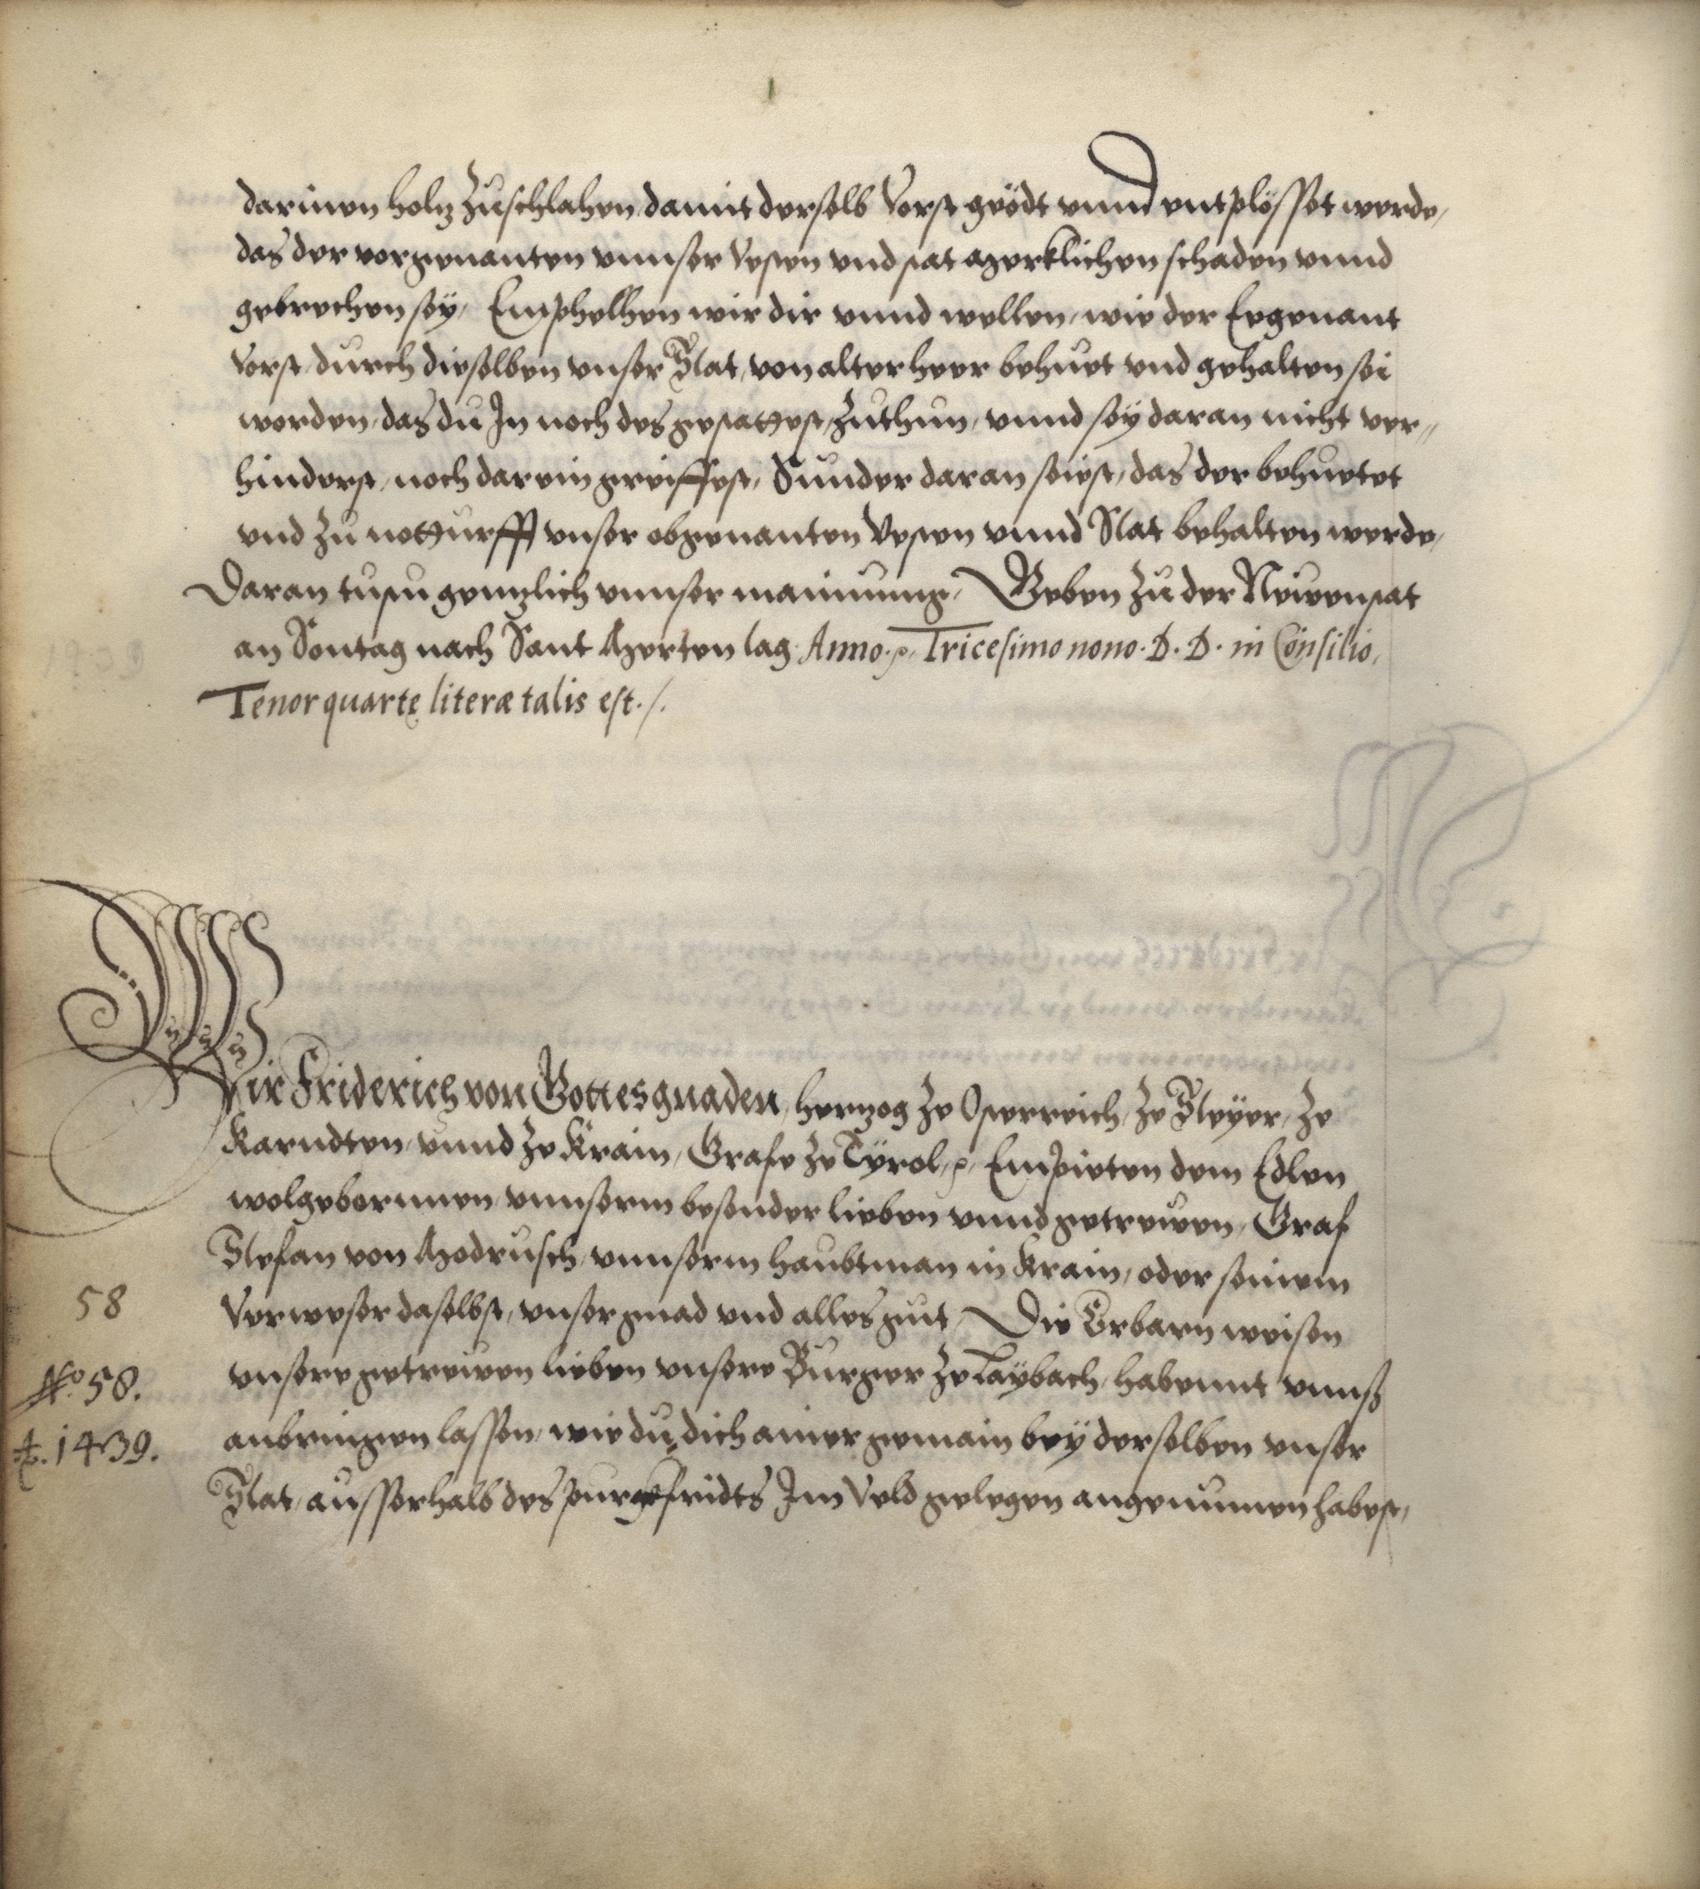 darinen holz Zuschlahen, damit derselb Vorst geödt vnnd entplösset werde,
das der vorgenanten vnnser Vesten vnd stat merklichen schaden vnnd
gebrechen sey, Emphelhen wir dir vnnd wellen, wie der Eegenant
Vorst durch dieselben vnser Stat, von alter heer behuet vnd gehalten sei
worden, das du In noch des gestattest, Zuthun, vnnd sey daran nicht ver//
hinderst, noch darein greiffest, Sunder daran seiest, das der behuetet
vnd Zu notturfft vnser obgenanten Vesten vnnd Stat behalten werde,
Daran tustu genzlich vnnser mainnung, Geben Zu der Newenstat
an Sontag nach Sant Merten tag. Anno. Tricesimo nono. D. D. in Consilio,
Tenor quartę literæ talis est./.
Wir Friderich von Gottes gnaden, herzog Ze Osterreich, Ze Steyer, Ze
Karndten, vnnd Ze Krain, Grafe Ze Tyrol, Empieten dem Edlen
wolgebornnen, vnnserm besonder lieben vnnd getrewen, Graf
Stefan von Modrusch, vnnserm haubtman in Krain, oder seinem
Verweser daselbst, vnser gnad vnd alles guet, Die Erbarn weisen
58
vnsere getreiwen lieben vnsere Burger Ze Laybach, habennt vnnß
No 58.
anbringen lassen, wie du dich ainer gemain bey derselben vnser
A. 1439.
Stat, ausserhalb des purgkfridts Im Veld gelegen angenumen habest,